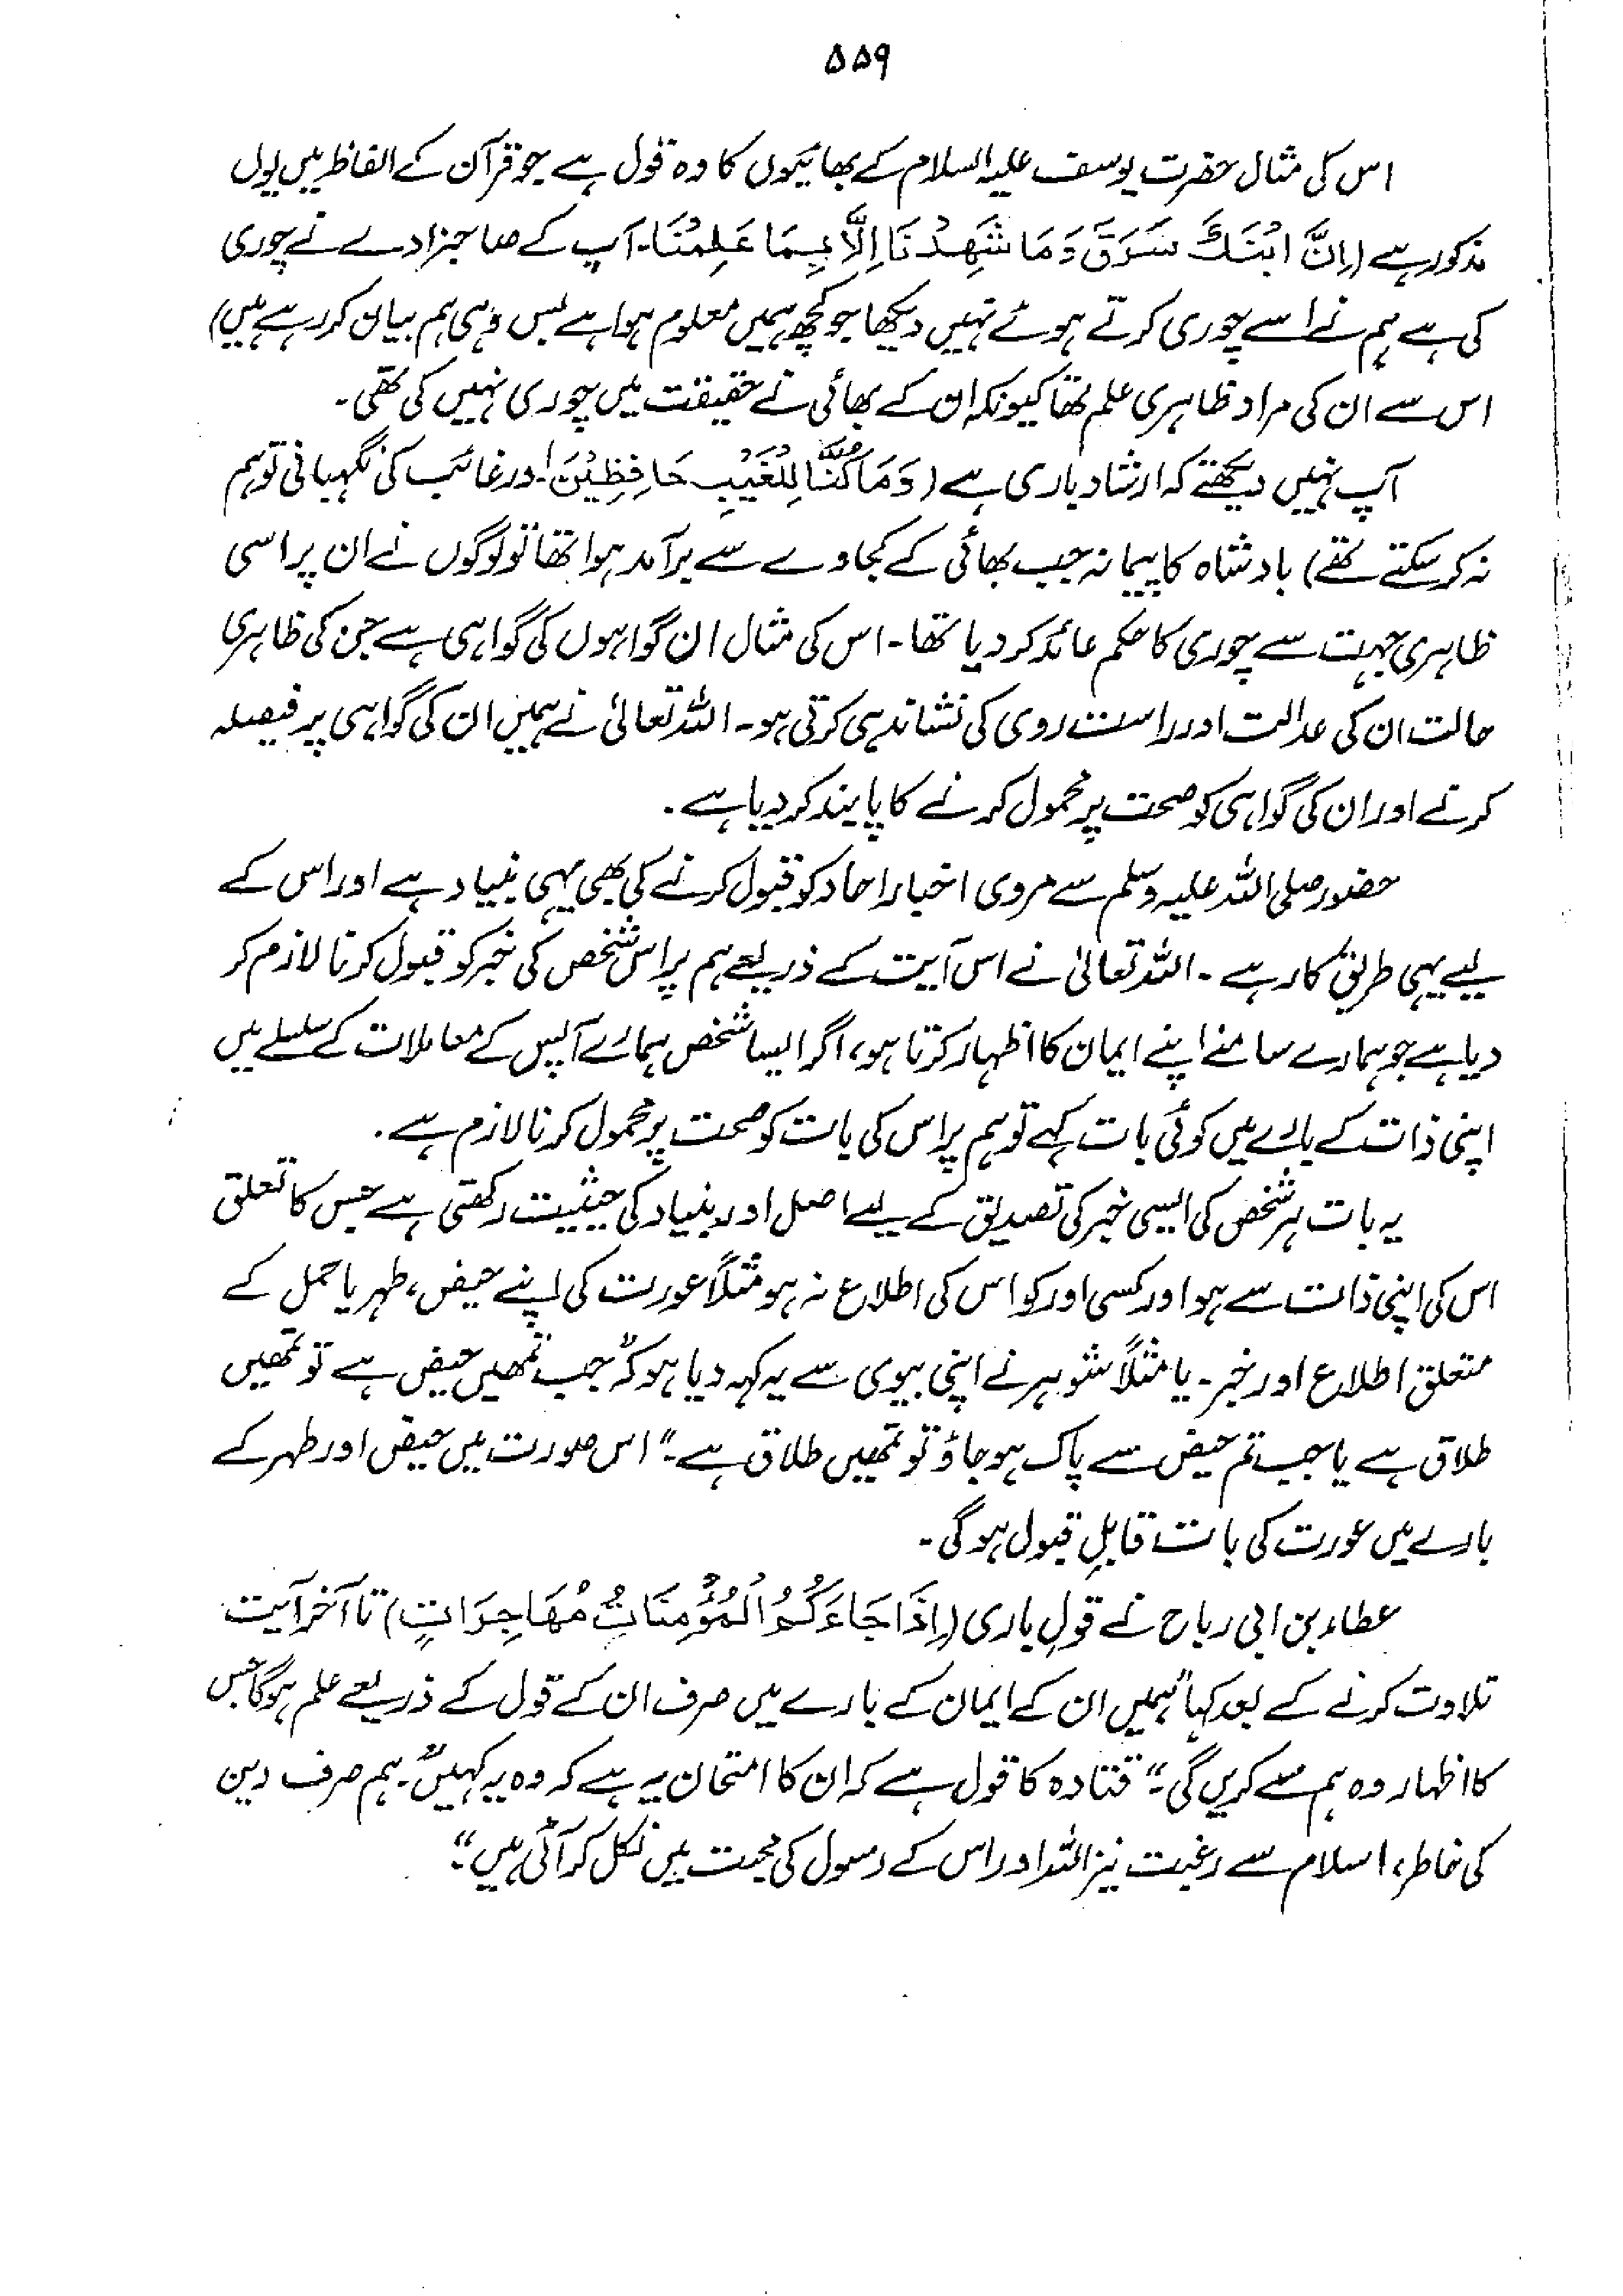 ۵۵۹
اس کی مثال حضرت یوسف علیہ السلام کے بھائیوں کا وہ قول ہے جو قرآن کے الفاظ میں یوں
مذکور ہے (اِنَّ ابْنَكَ سَرَقَ وَمَا شَهِدْنَا اِلَّا بِمَا عَلِمْنَا۔ آپ کے صاحبزادے نے چوری
کی ہے ہم نے اسے چوری کرتے ہوئے نہیں دیکھا جو کچھ ہمیں معلوم ہوا ہے بس وہی ہم بیان کر رہے ہیں)
اس سے ان کی مراد ظاہری علم تھا کیونکہ ان کے بھائی نے حقیقت میں چوری نہیں کی تھی۔
آپ نہیں دیکھتے کہ ارشاد باری ہے (وَمَا كُنَّا لِلْغَيْبِ حَافِظِيْنَ۔ اور غائب کی نگہبانی تو ہم
نہ کر سکتے تھے) بادشاہ کا پیمانہ جب بھائی کے کجاوے سے برآمد ہوا تھا تو لوگوں نے ان پر اسی
ظاہری جہت سے چوری کا حکم عائد کر دیا تھا۔ اس کی مثال ان گواہوں کی گواہی ہے جن کی ظاہری
حالت ان کی عدالت اور راست روی کی نشاندہی کرتی ہو۔ اللہ تعالیٰ نے ہمیں ان کی گواہی پر فیصلہ
کرنے اور ان کی گواہی کو صحت پر محمول کرنے کا پابند کر دیا ہے۔
حضور صلی اللہ علیہ وسلم سے مروی اخبار احاد کو قبول کرنے کی بھی یہی بنیاد ہے اور اس کے
لیے یہی طریق کار ہے۔ اللہ تعالیٰ نے اس آیت کے ذریعے ہم پر اس شخص کی خبر کو قبول کرنا لازم کر
دیا ہے جو ہمارے سامنے اپنے ایمان کا اظہار کرتا ہو، اگر ایسا شخص ہمارے آپس کے معاملات کے سلسلے میں
اپنی ذات کے بارے میں کوئی بات کہے تو ہم پر اس کی بات کو صحت پر محمول کرنا لازم ہے۔
یہ بات ہر شخص کی ایسی خبر کی تصدیق کے لیے اصل اور بنیاد کی حیثیت رکھتی ہے جس کا تعلق
اس کی اپنی ذات سے ہو اور کسی اور کو اس کی اطلاع نہ ہو مثلاً عورت کی اپنے حیض، طہر یا حمل کے
متعلق اطلاع اور خبر۔ یا مثلاً شوہر نے اپنی بیوی سے یہ کہہ دیا ہو کہ "جب تمھیں حیض ہے تو تمھیں
طلاق ہے یا جب تم حیض سے پاک ہو جاؤ تو تمھیں طلاق ہے۔" اس صورت میں حیض اور طہر کے
بارے میں عورت کی بات قابلِ قبول ہو گی۔
عطاء بن ابی رباح نے قولِ باری (اِذَا جَاءَكُمُ الْمُؤْمِنَاتُ مُهَاجِرَاتٍ) تا آخر آیت
تلاوت کرنے کے بعد کہا "ہمیں ان کے ایمان کے بارے میں صرف ان کے قول کے ذریعے علم ہو گا جس
کا اظہار وہ ہم سے کریں گی۔" قتادہ کا قول ہے کہ ان کا امتحان یہ ہے کہ وہ یہ کہیں "۔ ہم صرف دین
کی خاطر، اسلام سے رغبت نیز اللہ اور اس کے رسول کی محبت میں نکل کر آئی ہیں۔"